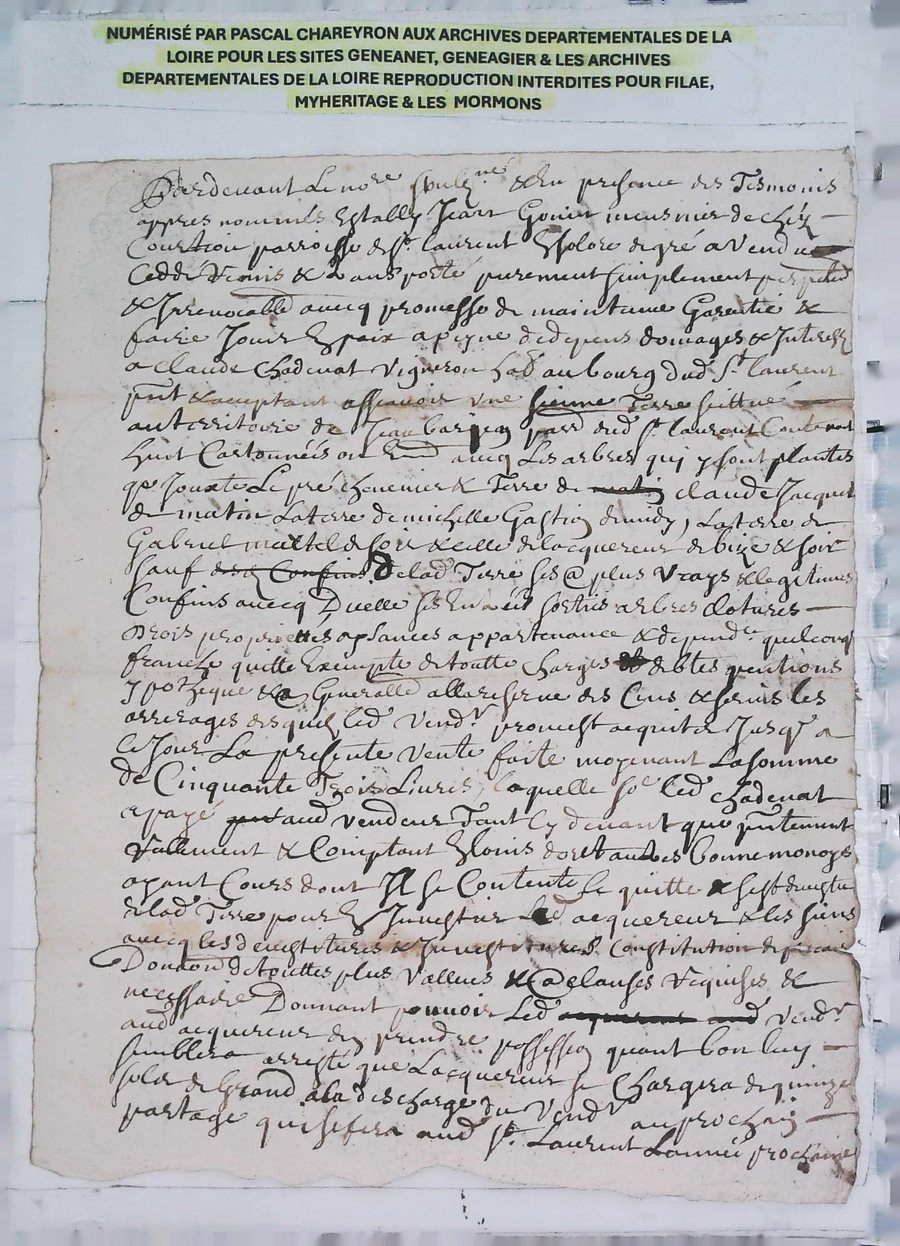 NUMÉRISÉ PAR PASCAL CHAREYRON AUX ARCHIVES DEPARTEMENTALES DE LA
LOIRE POUR LES SITES GENEANET, GENEAGIER & LES ARCHIVES
DEPARTEMENTALES DE LA LOIRE REPRODUCTION INTERDITES POUR FILAE,
MYHERITAGE & LES MORMONS
Pardevant Le nore & En presence des Tesmoins
appres nommés Estably Jean Gonin meusnier de chez
parroisse de St. laurent de gré a Vendu
Ceddé Remis & Transporté purement simplement perpetuel
& Irrevocable avecq promesse de maintenue Garentie &
faire Jouir En paix a peyne de depens domages & Interests
a Claude Chadenat Vigneron hab au bourg dud St. laurent
pnt & aceptant assavoir une sienne Terre scittué
au territoire de parr dud St. laurent Contenant
huit Cartonnées ou avecq Les arbres qui y sont plantés
que Jouxte Le pré chenevier & Terre de claude Jacquet
de matin La terre de michelle de midy, La terre de
Gabriel de soir & celle de lacquereur de bize & soir
sauf Confins De lad Terre ses @ plus Vrays & legitimes
Confins avecq Ducelle ses Entrées sorties arbres Clotures
Drois proprietés aysances appartenance & depend quelconq
franche quitte Exempte de toutte Charges debtes pentions
Ypotheque & Generalle a la reserve des Cens & servis les
arrerages desquels led Vendr promest acquiter Jusqa
Ce Jour La presente Vente faite moyenant La somme
de Cinquante Trois Livres, laquelle soe led Chadenat
a payé aud Vendeur Tant Cy devant que pntement
reallement & Comptant En Louis dor et autres bonne monoye
ayant Cours dont Il se Contente Le quitte & sest devestu
de lad Terre pour En Investir Led acquereur & les siens
avecq les devestitures & Investitures Constitution de precaire
Donation de touttes plus Vallues & @ clauses requises &
necessaire Donnant pouvoir Led Vendr
aud acquereur den prendre possession quant bon luy
semblera arresté que Lacquereur se Chargera de quinze
solz de Grand a la descharge du Vendr au prochain
partage qui se fera aud St. Laurent Lannée prochaine